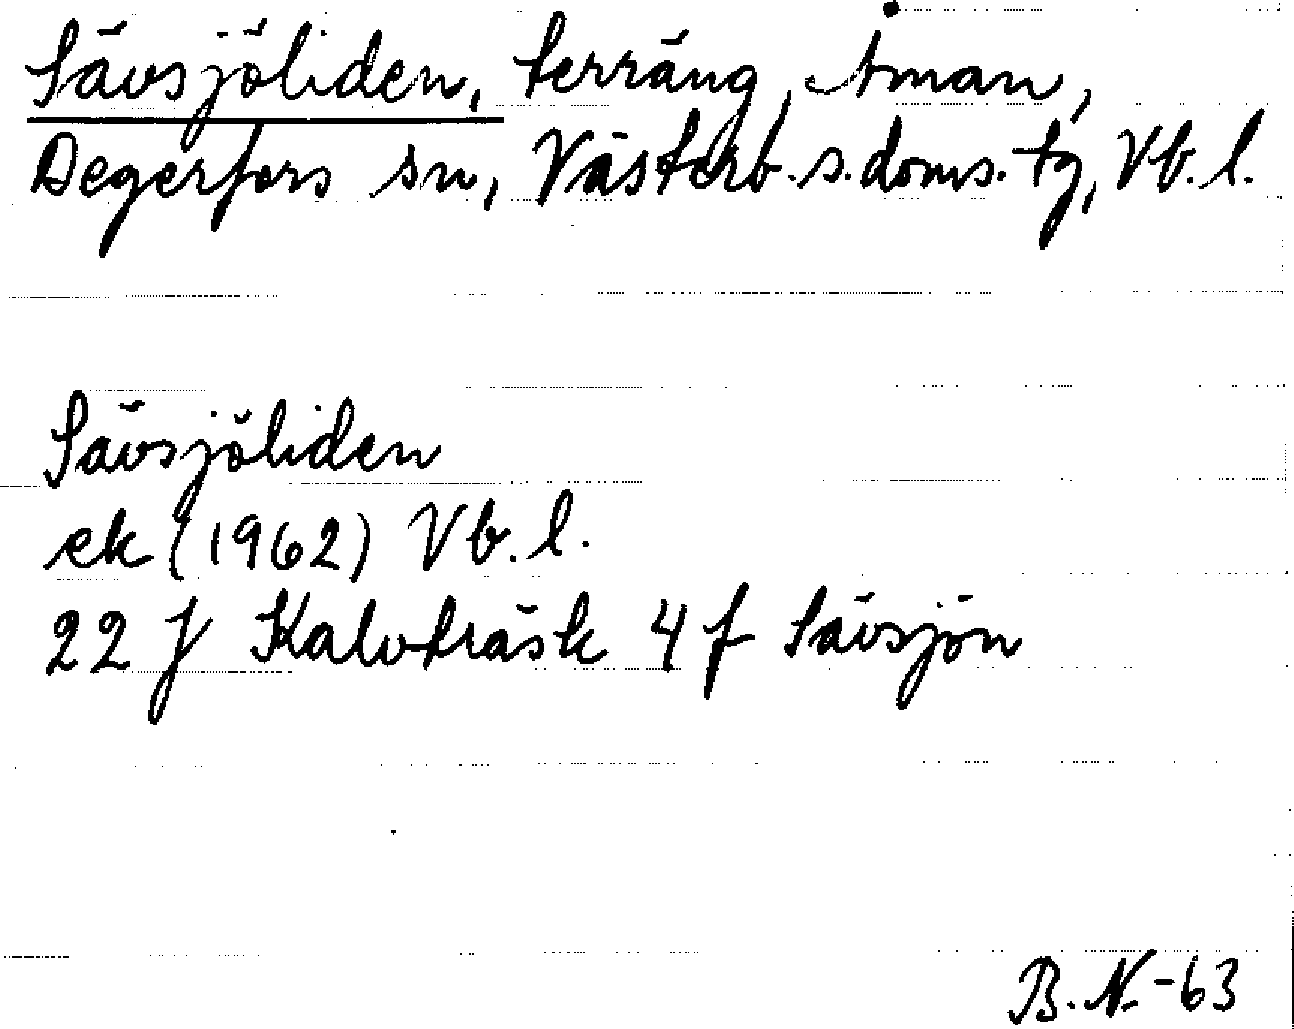 Sävsjöliden, terräng, Åman,
Degerfors sn, Västerb. s. doms. tg, Vb. l.
Sävsjöliden
ek (1962) Vb. l.
22 J Kalvträsk 4 f Sävsjön
B. N. -63